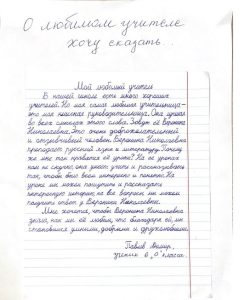 О любимом учителе
хочу сказать...
Мой любимый учитель
В нашей школе есть много хороших
учителей. Но моя самая любимая учительница –
это моя классная руководительница. Она лучшая
во всех смыслах этого слова. Зовут её Вероника
Николаевна. Это очень доброжелательный
и отзывчивый человек. Вероника Николаевна
преподаёт русский язык и литературу. Почему
же мне так нравятся её уроки? На её уроках
нам не скучно, она умеет учить и рассказывать
так, чтобы было всем интересно и понятно. На
уроке мы можем пошутить и рассказать
интересную историю, на все вопросы мы можем
получить ответ у Вероники Николаевны.
Мне хочется, чтобы Вероника Николаевна
знала, как мы её любим, что благодаря ей мы
становимся умными, добрыми и дружными.
ученик 6 „О" класса.